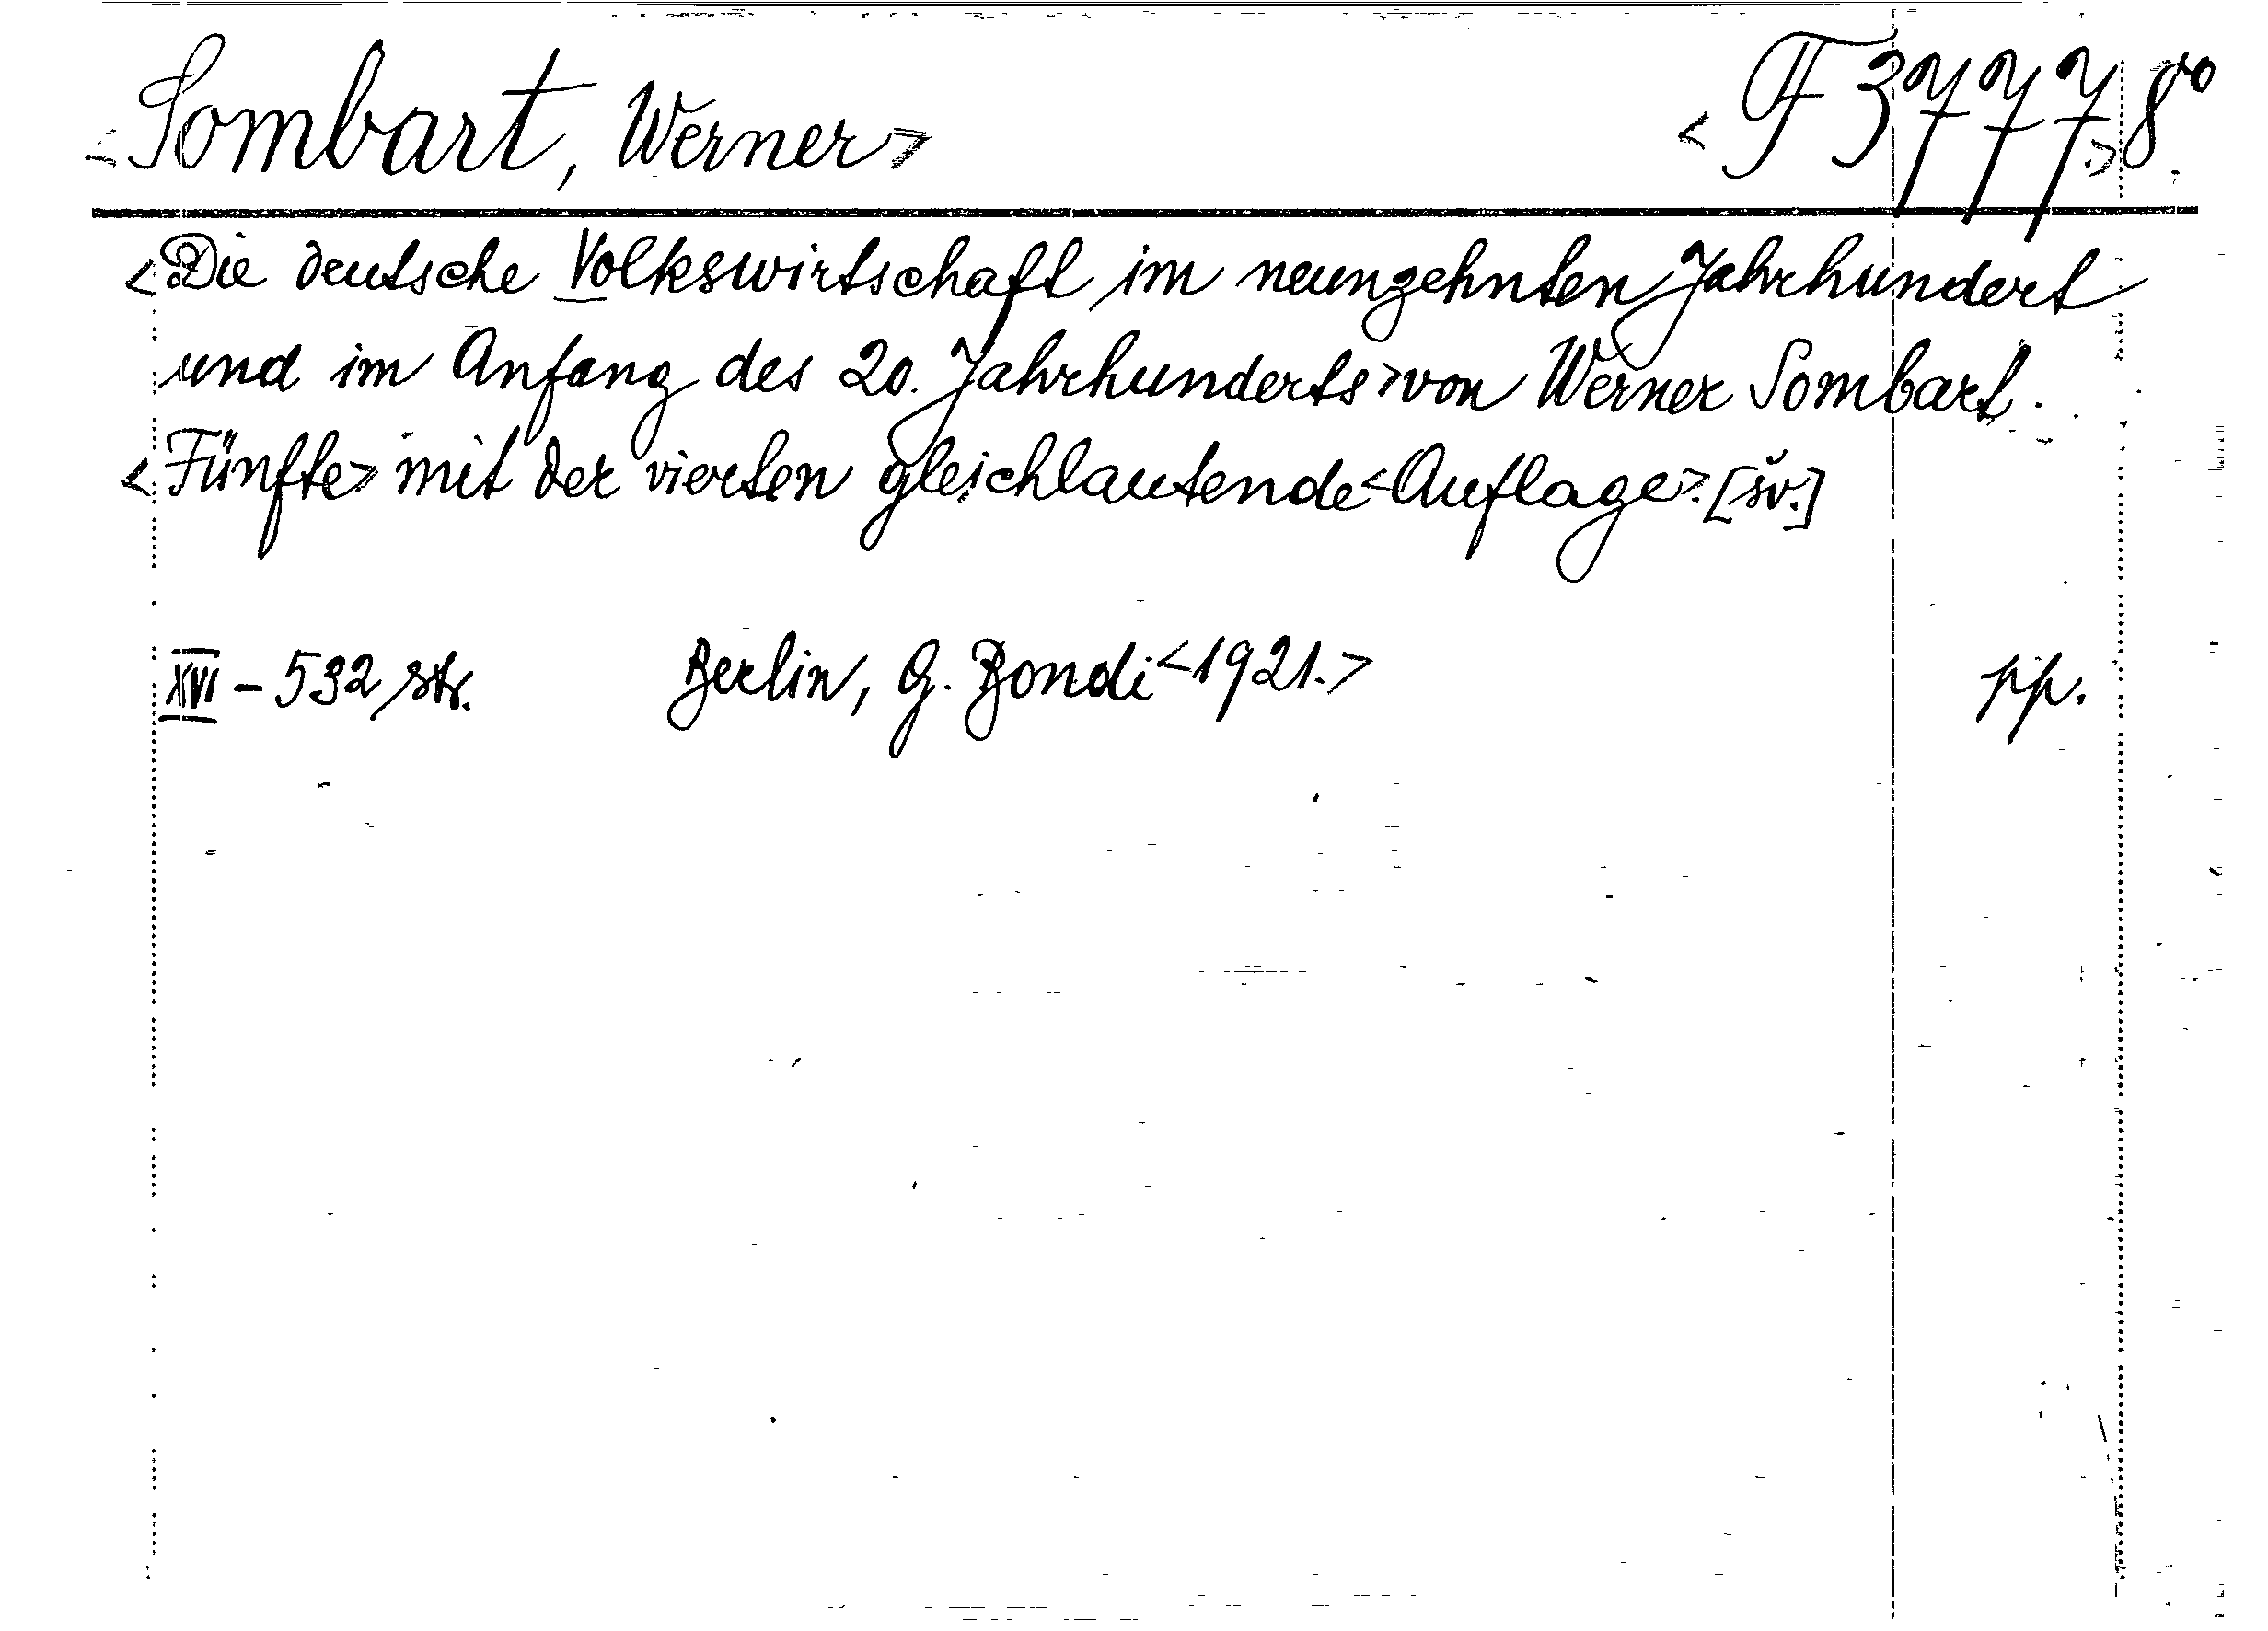 <Sombart, Werner> <F 3777> 8°
<Die deutsche Volkswirtschaft im neunzehnten Jahrhundert
und im Anfang des 20. Jahrhunderts> von Werner Sombart.
<Fünfte> mit der vierten gleichlautende <Auflage>. [šv.]
XVI - 532 str. Berlin, G. Bondi <1921.> pp.